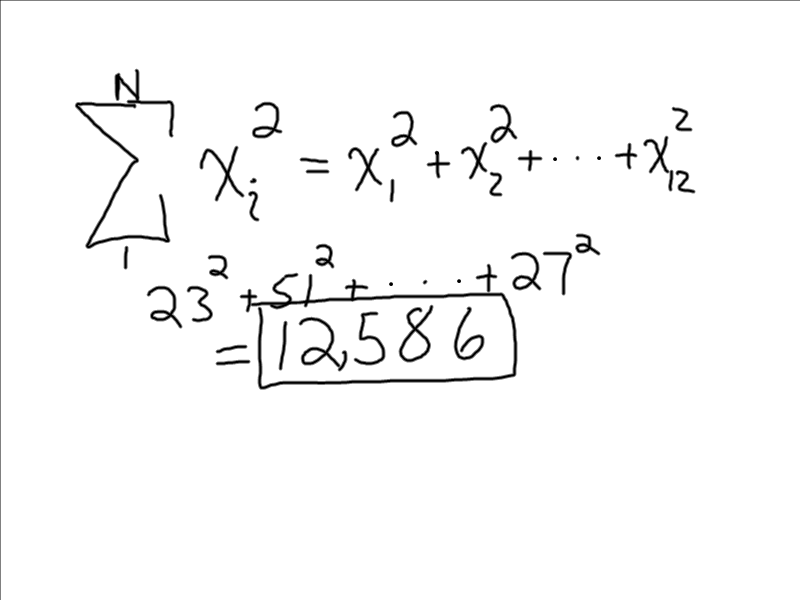 N
∑ xᵢ² = x₁² + x₂² + · · · + x₁₂²
1
23² + 51² + · · · + 27²
= 12,586